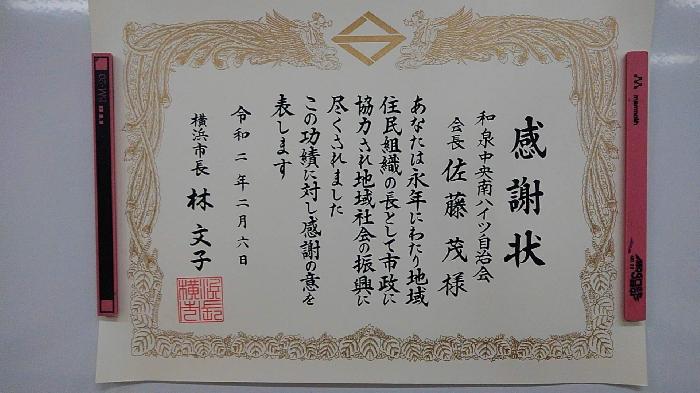 感謝状
和泉中央南ハイツ自治会
会長 佐藤 茂 様
あなたは永年にわたり地域
住民組織の長として市政に
協力され地域社会の振興に
尽くされました
この功績に対し感謝の意を
表します
令和二年二月六日
横浜市長 林 文子